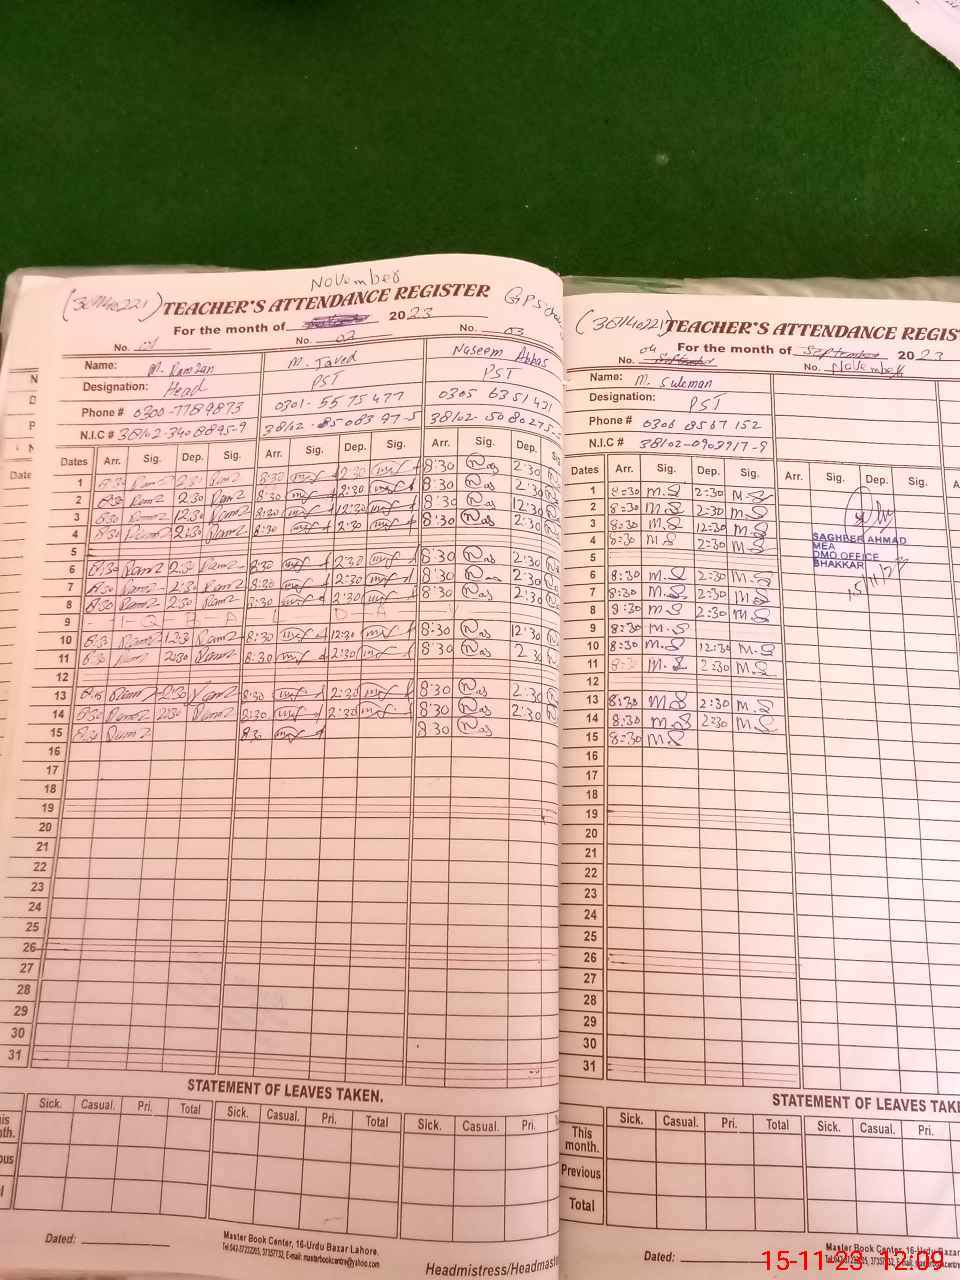 November
(38140221) TEACHER'S ATTENDANCE REGISTER
For the month of 2023
No. 01 No. 02 No. 03
Name: M. Ramzan M. Javed Naseem Abbas
Designation: Head PST PST
Phone # 0300-7789873 0301-5575477 0305 6351431
N.I.C # 38102-3408895-9
Dates Arr. Sig. Dep. Sig. Arr. Sig. Dep. Sig. Arr. Sig. Dep.
1 8:30 2:30 8:30 2:30 8:30 Nas 2:30
2 8:30 Ram2 2:30 Ram2 8:30 2:30 8:30 Nas 2:30
3 8:30 Ram2 12:30 Ram2 8:30 12:30 8:30 Nas 12:30
4 8:30 Ram2 2:30 Ram2 8:30 2:30 8:30 Nas 2:30
5
6 8:30 Ram2 2:30 Ram2 8:30 2:30 8:30 Nas 2:30
7 8:30 Ram2 2:30 Ram2 8:30 2:30 8:30 Nas 2:30
8 8:30 Ram2 2:30 Ram2 8:30 2:30 8:30 Nas 2:30
9 I - Q - B - A - L D - A - Y
10 8:30 Ram2 12:30 Ram2 8:30 12:30 8:30 Nas 12:30
11 8:30 2:30 Ram2 8:30 2:30 8:30 Nas 2:30
12
13 Ram2 2:30 Ram2 8:30 2:30 8:30 Nas 2:30
14 8:30 Ram2 2:30 Ram2 2:30 8:30 Nas 2:30
15 8:30 Ram2 8:30 8:30 Nas
16
17
18
19
20
21
22
23
24
25
26
27
28
29
30
31
STATEMENT OF LEAVES TAKEN.
Sick. Casual. Pri. Total Sick. Casual. Pri. Total Sick. Casual. Pri.
Dated:
Master Book Center, 16-Urdu Bazar Lahore.
Headmistress/Headmaste
(38140221) TEACHER'S ATTENDANCE REGIS
For the month of September 2023
No. 04 September No. November
Name: M. Suleman
Designation: PST
Phone # 0306 8567152
N.I.C # 38102-0902917-9
Dates Arr. Sig. Dep. Sig. Arr. Sig. Dep. Sig.
1 8:30 M.S 2:30 M.S
2 8:30 M.S 2:30 M.S
3 8:30 M.S 12:30 M.S
4 8:30 M.S 2:30 M.S
5
6 8:30 M.S 2:30 M.S
7 8:30 M.S 2:30 M.S
8 8:30 M.S 2:30 M.S
9 8:30 M.S
10 8:30 M.S 12:30 M.S
11 8:30 M.S 2:30 M.S
12
13 8:30 M.S 2:30 M.S
14 8:30 M.S 2:30 M.S
15 8:30 M.S
16
17
18
19
20
21
22
23
24
25
26
27
28
29
30
31
SAGHEER AHMAD
MEA
DMO OFFICE
BHAKKAR
15/11/23
STATEMENT OF LEAVES TAKE
Sick. Casual. Pri. Total Sick. Casual. Pri.
This month.
Previous
Total
Dated:
Master Book Center, 16-Urdu Bazar
15-11-23 12:09